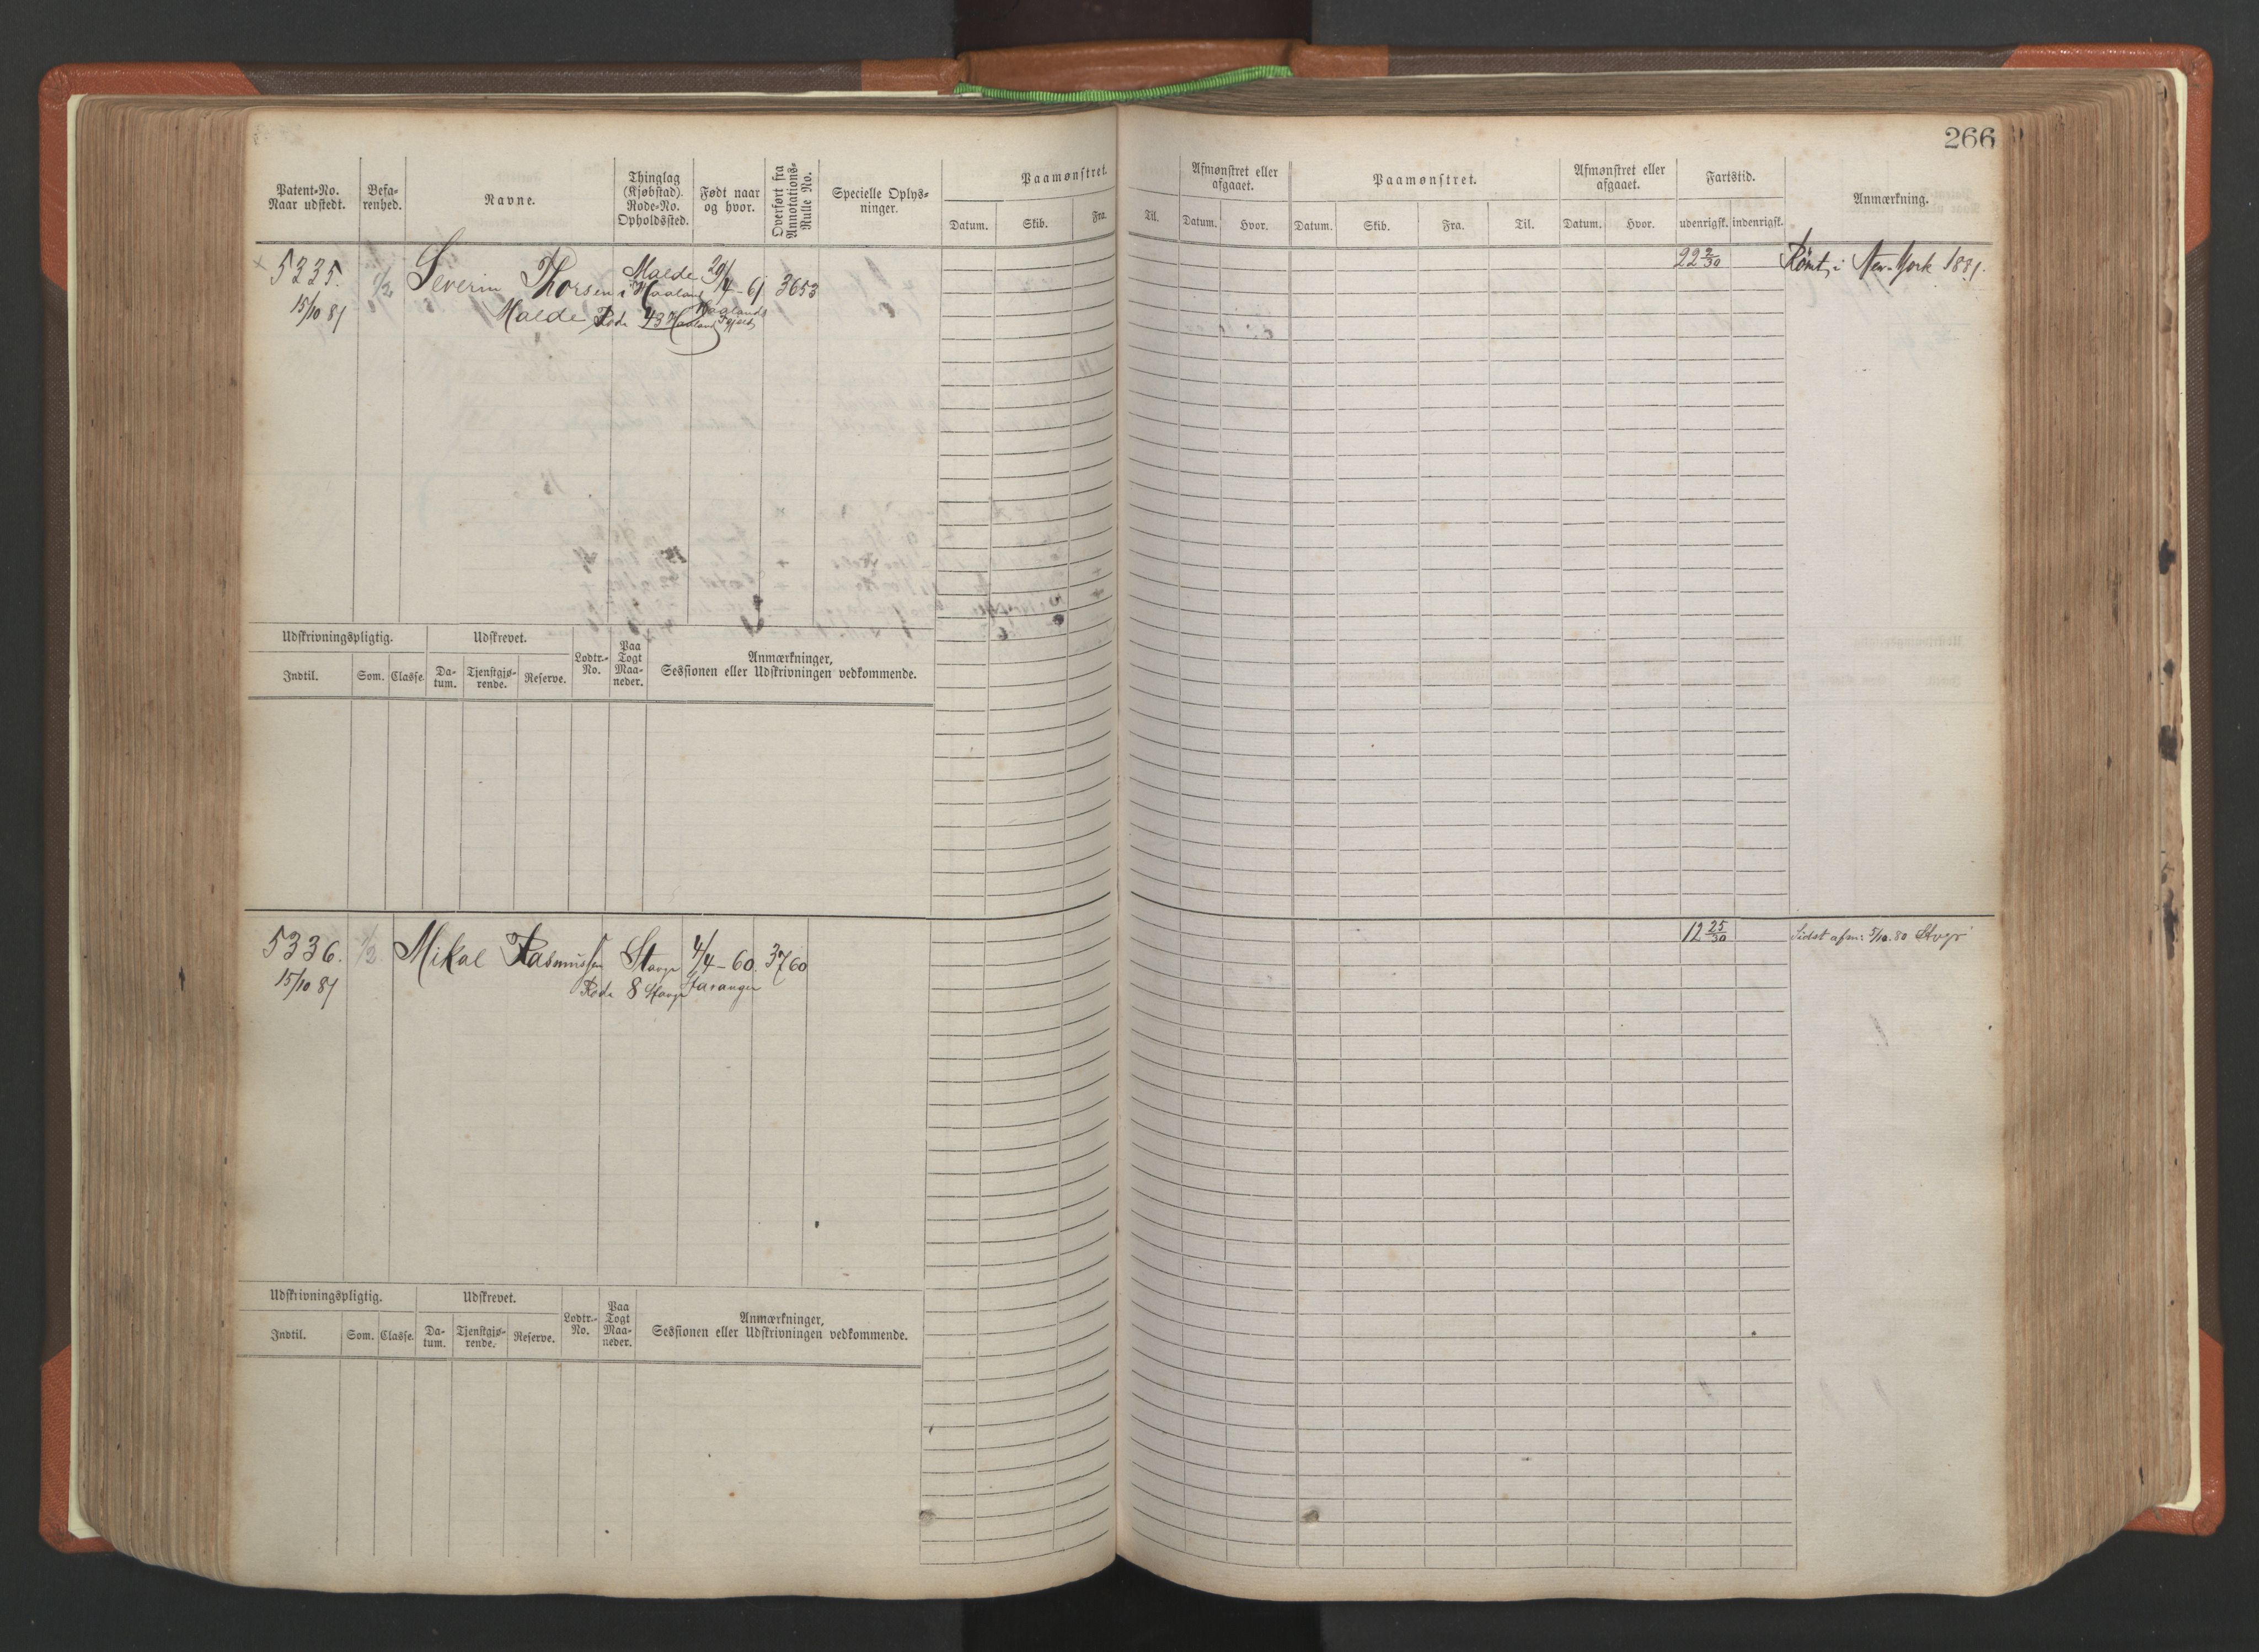 266
Patent-No.
Naar udstedt.
Befa-
renhed.
Navne.
Thinglag
(Kjøbstad).
Rode-No.
Opholdssted.
Født naar
og hvor.
Overført fra
Annotations-
Rulle No.
Specielle Oplys-
ninger.
Paamønstret.
Datum. Skib. Fra. Til.
Afmønstret eller
afgaaet.
Datum. Hvor.
Paamønstret.
Datum. Skib. Fra. Til.
Afmønstret eller
afgaaet.
Datum. Hvor.
Fartstid.
udenrigsk. indenrigsk.
Anmærkning.
5335. 1/2 Severin Thorsen Malde 29/4-61 3653 22 2/30 Rømt i New-York 1881.
i Haaland
15/10 81 Malde Rode 43 Haaland Haalands
Udskrivningspligtig. Udskrevet. Lodtr.-
No. Paa
Togt
Maa-
neder. Anmærkninger,
Sessionen eller Udskrivningen vedkommende.
Indtil. Som. Classe. Da-
tum. Tjenstgjø-
rende. Reserve.
5336. 1/2. Mikal Rasmussen Stavgr 4/4-60. 3760 12 25/30 Sidst afm: 5/10. 80 Stvgr
15/10 81 Rode 8 Stavgr Stavanger
Udskrivningspligtig. Udskrevet. Lodtr.-
No. Paa
Togt
Maa-
neder. Anmærkninger,
Sessionen eller Udskrivningen vedkommende.
Indtil. Som. Classe. Da-
tum. Tjenstgjø-
rende. Reserve.